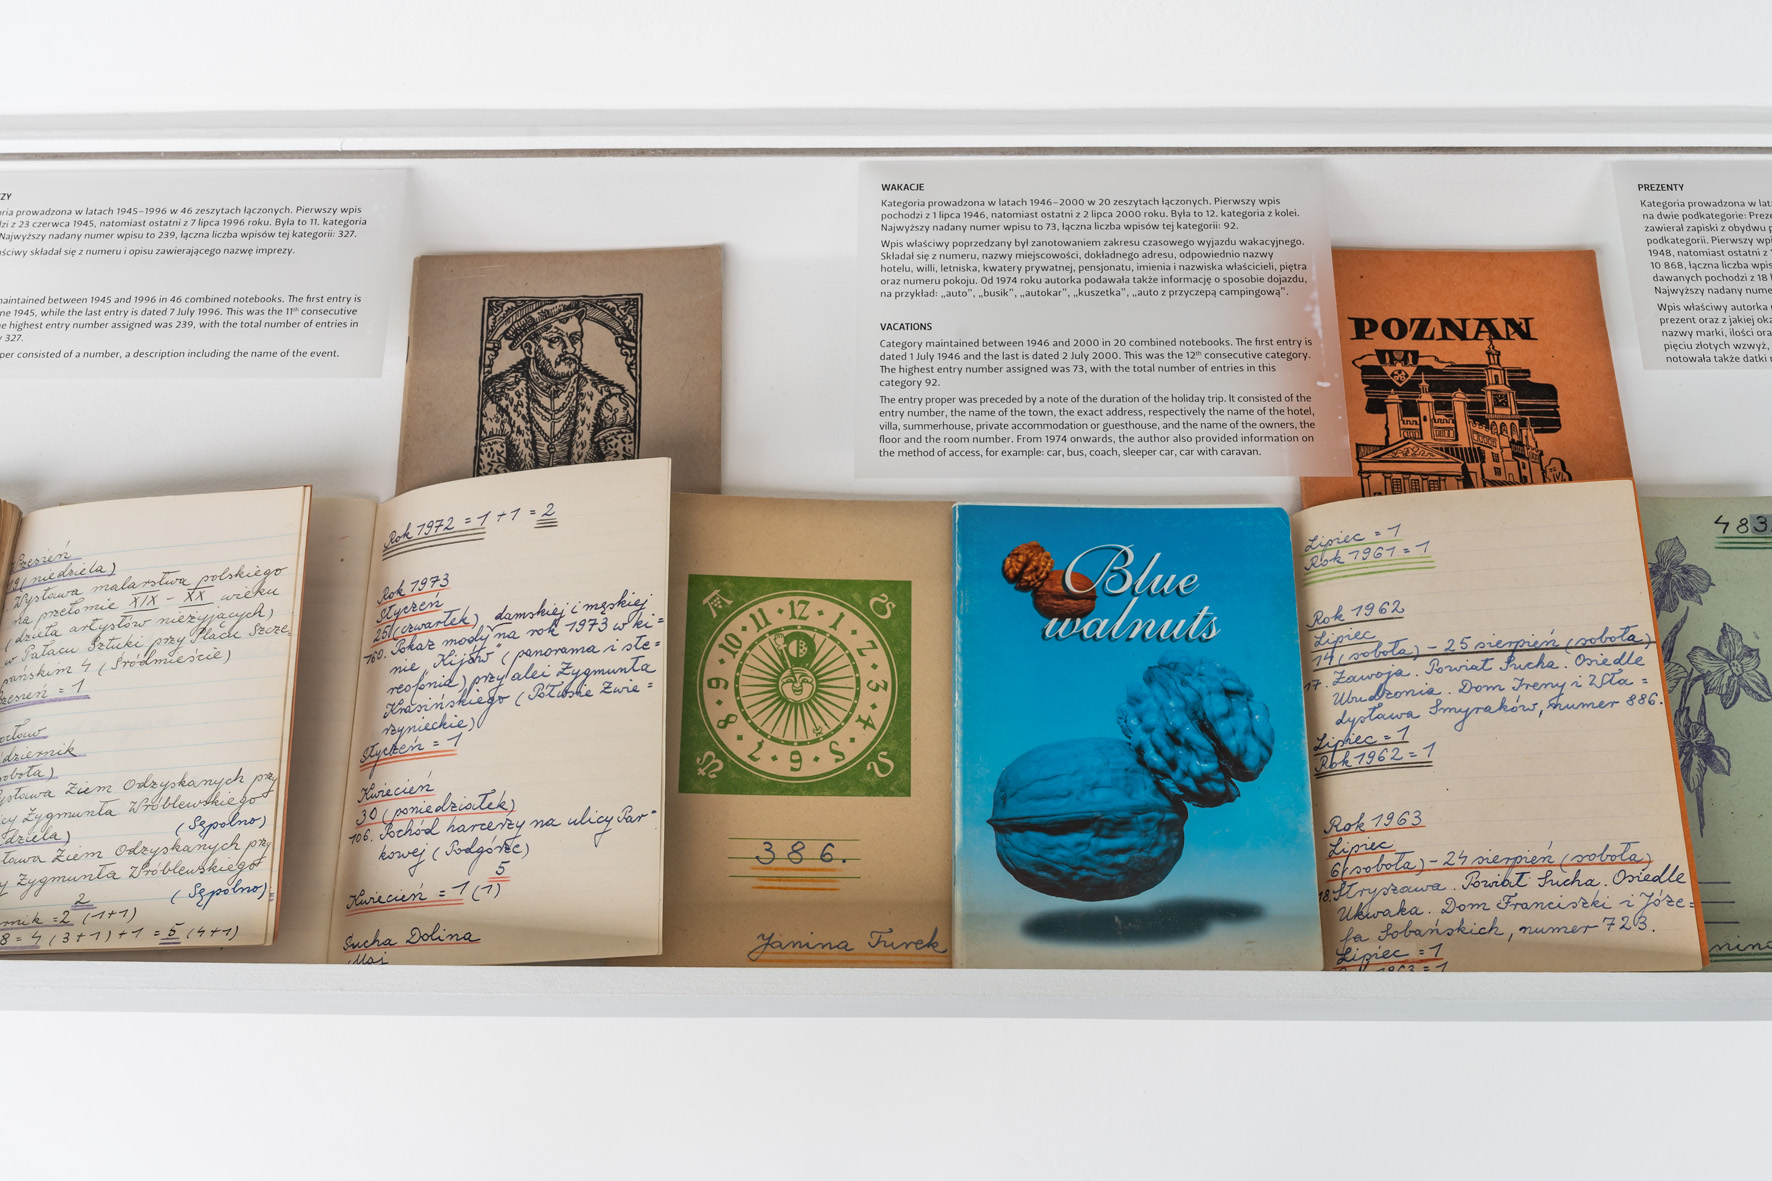 ZY
oria prowadzona w latach 1945–1996 w 46 zeszytach łączonych. Pierwszy wpis
dzi z 23 czerwca 1945, natomiast ostatni z 7 lipca 1996 roku. Była to 11. kategoria
Najwyższy nadany numer wpisu to 239, łączna liczba wpisów tej kategorii: 327.
ściwy składał się z numeru i opisu zawierającego nazwę imprezy.
maintained between 1945 and 1996 in 46 combined notebooks. The first entry is
ne 1945, while the last entry is dated 7 July 1996. This was the 11th consecutive
e highest entry number assigned was 239, with the total number of entries in
y 327.
per consisted of a number, a description including the name of the event.
WAKACJE
Kategoria prowadzona w latach 1946–2000 w 20 zeszytach łączonych. Pierwszy wpis
pochodzi z 1 lipca 1946, natomiast ostatni z 2 lipca 2000 roku. Była to 12. kategoria z kolei.
Najwyższy nadany numer wpisu to 73, łączna liczba wpisów tej kategorii: 92.
Wpis właściwy poprzedzany był zanotowaniem zakresu czasowego wyjazdu wakacyjnego.
Składał się z numeru, nazwy miejscowości, dokładnego adresu, odpowiednio nazwy
hotelu, willi, letniska, kwatery prywatnej, pensjonatu, imienia i nazwiska właścicieli, piętra
oraz numeru pokoju. Od 1974 roku autorka podawała także informację o sposobie dojazdu,
na przykład: „auto”, „busik”, „autokar”, „kuszetka”, „auto z przyczepą campingową”.
VACATIONS
Category maintained between 1946 and 2000 in 20 combined notebooks. The first entry is
dated 1 July 1946 and the last is dated 2 July 2000. This was the 12th consecutive category.
The highest entry number assigned was 73, with the total number of entries in this
category 92.
The entry proper was preceded by a note of the duration of the holiday trip. It consisted of the
entry number, the name of the town, the exact address, respectively the name of the hotel,
villa, summerhouse, private accommodation or guesthouse, and the name of the owners, the
floor and the room number. From 1974 onwards, the author also provided information on
the method of access, for example: car, bus, coach, sleeper car, car with caravan.
PREZENTY
Kategoria prowadzona w lat
na dwie podkategorie: Preze
zawierał zapiski z obydwu p
podkategorii. Pierwszy wpi
1948, natomiast ostatni z
10 868, łączna liczba wpis
dawanych pochodzi z 18
Najwyższy nadany nume
Wpis właściwy autorka
prezent oraz z jakiej oka
nazwy marki, ilości ora
pięciu złotych wzwyż,
notowała także datki
POZNAŃ
zesień
(niedziela)
Wystawa malarstwa polskiego
na przełomie XIX – XX wieku
(dzieła artystów nieżyjących)
w Pałacu Sztuki przy Placu Szcze=
pańskim 4 (Śródmieście)
rzesień = 1
rocław
dziernik
obota)
ystawa Ziem Odzyskanych przy
cy Zygmunta Wróblewskiego
dziela) (Sępolno)
tawa Ziem Odzyskanych przy
y Zygmunta Wróblewskiego
2 (Sępolno)
rnik = 2 (1+1)
8 = 4 (3+1) + 1 = 5 (4+1)
Rok 1972 = 1 + 1 = 2
Rok 1973
Styczeń
25 (czwartek) damskiej i męskiej
160. Pokaz mody na rok 1973 w ki=
nie „Kijów” (panorama i ste=
reofonia) przy alei Zygmunta
Krasińskiego (Półwsie Zwie=
rzynieckie)
Styczeń = 1
Kwiecień
30 (poniedziałek)
106. Pochód harcerzy na ulicy Par=
kowej (Podgórze)
5
Kwiecień = 1 (1)
Sucha Dolina
Maj
12 1 2 3 4 5 6 7 8 9 10 11
386.
Janina Turek
Blue
walnuts
Lipiec = 1
Rok 1961 = 1
Rok 1962
Lipiec
14 (sobota) – 25 sierpień (sobota)
17. Zawoja. Powiat Sucha. Osiedle
Wbudzonia. Dom Ireny i Wła=
dysława Smyraków, numer 886.
Lipiec = 1
Rok 1962 = 1
Rok 1963
Lipiec
6 (sobota) – 24 sierpień (sobota)
18. Stryszawa. Powiat Sucha. Osiedle
Ukwaka. Dom Franciszki i Józe=
fa Sobańskich, numer 723.
Lipiec = 1
Rok 1963 = 1
483
nina